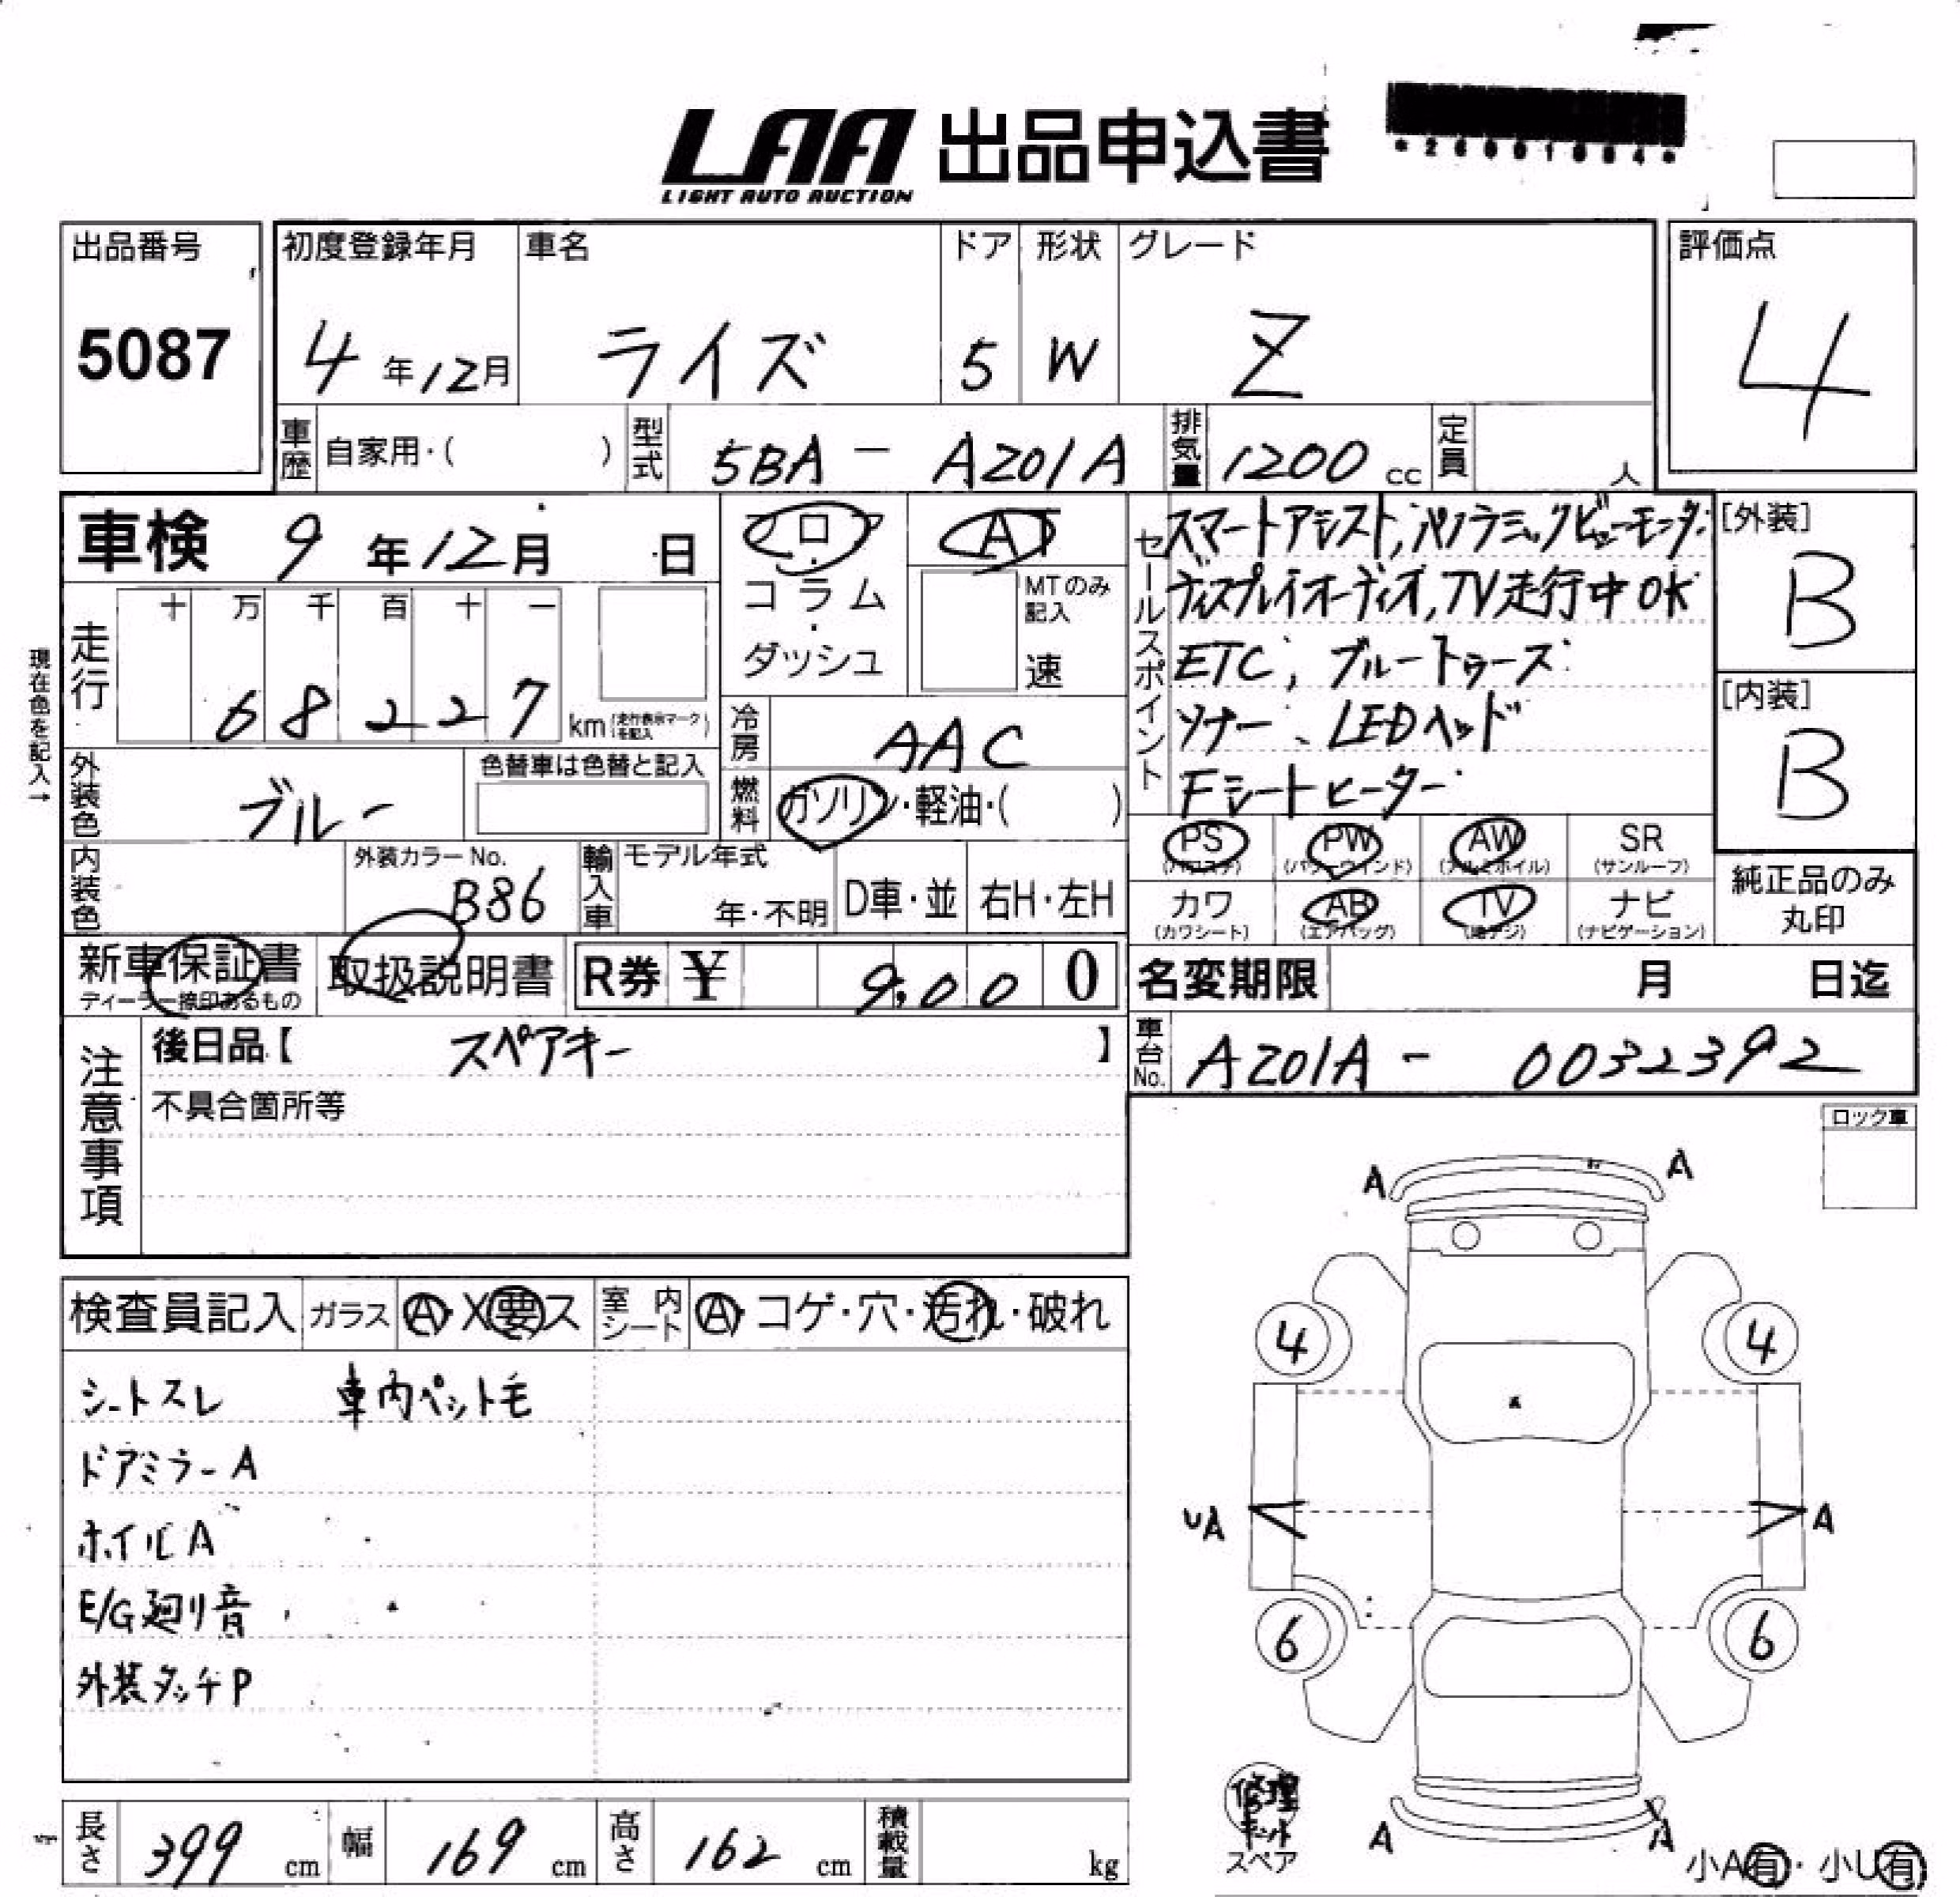 LAA 出品申込書
LIGHT AUTO AUCTION
*26001004*
出品番号 初度登録年月 車名 ドア 形状 グレード 評価点
5087 4年12月 ライズ 5 W Z 4
車歴 自家用・( ) 型式 5BA - A201A 排気量 1200 cc 定員 人
車検 9年12月 日
フロア・コラム・ダッシュ
AT
MTのみ記入 速
セールスポイント
スマートアシスト,パノラミックビューモニター
ディスプレイオーディオ,TV走行中OK
ETC, ブルートゥース
ソナー、LEDヘッド
Fシートヒーター
[外装]
B
[内装]
B
現在色を記入→
走行 十 万 千 百 十 一
68227 km (走行表示マークを記入)
冷房 AAC
外装色 ブルー 色替車は色替と記入
燃料 ガソリン・軽油・( )
内装色 外装カラーNo. B86
輸入車 モデル年式 年・不明 D車・並 右H・左H
PS (パワステ) PW (パワーウインド) AW (アルミホイル) SR (サンルーフ)
カワ (カワシート) AB (エアバッグ) TV (地デジ) ナビ (ナビゲーション)
純正品のみ丸印
新車保証書 ディーラー捺印あるもの 取扱説明書 R券 ¥ 9,000
名変期限 月 日迄
注意事項
後日品【 スペアキー 】
車台No. A201A - 0032392
不具合箇所等
ロック車
検査員記入 ガラス A・X要ス 室内シート A・コゲ・穴・汚れ・破れ
シートスレ 車内ペット毛
ドアミラーA
ホイルA
E/G廻り音
外装タッチP
A A
4 4
UA A
6 6
A A
修理キット
スペア
小A有・小U有
長さ 399 cm 幅 169 cm 高さ 162 cm 積載量 kg